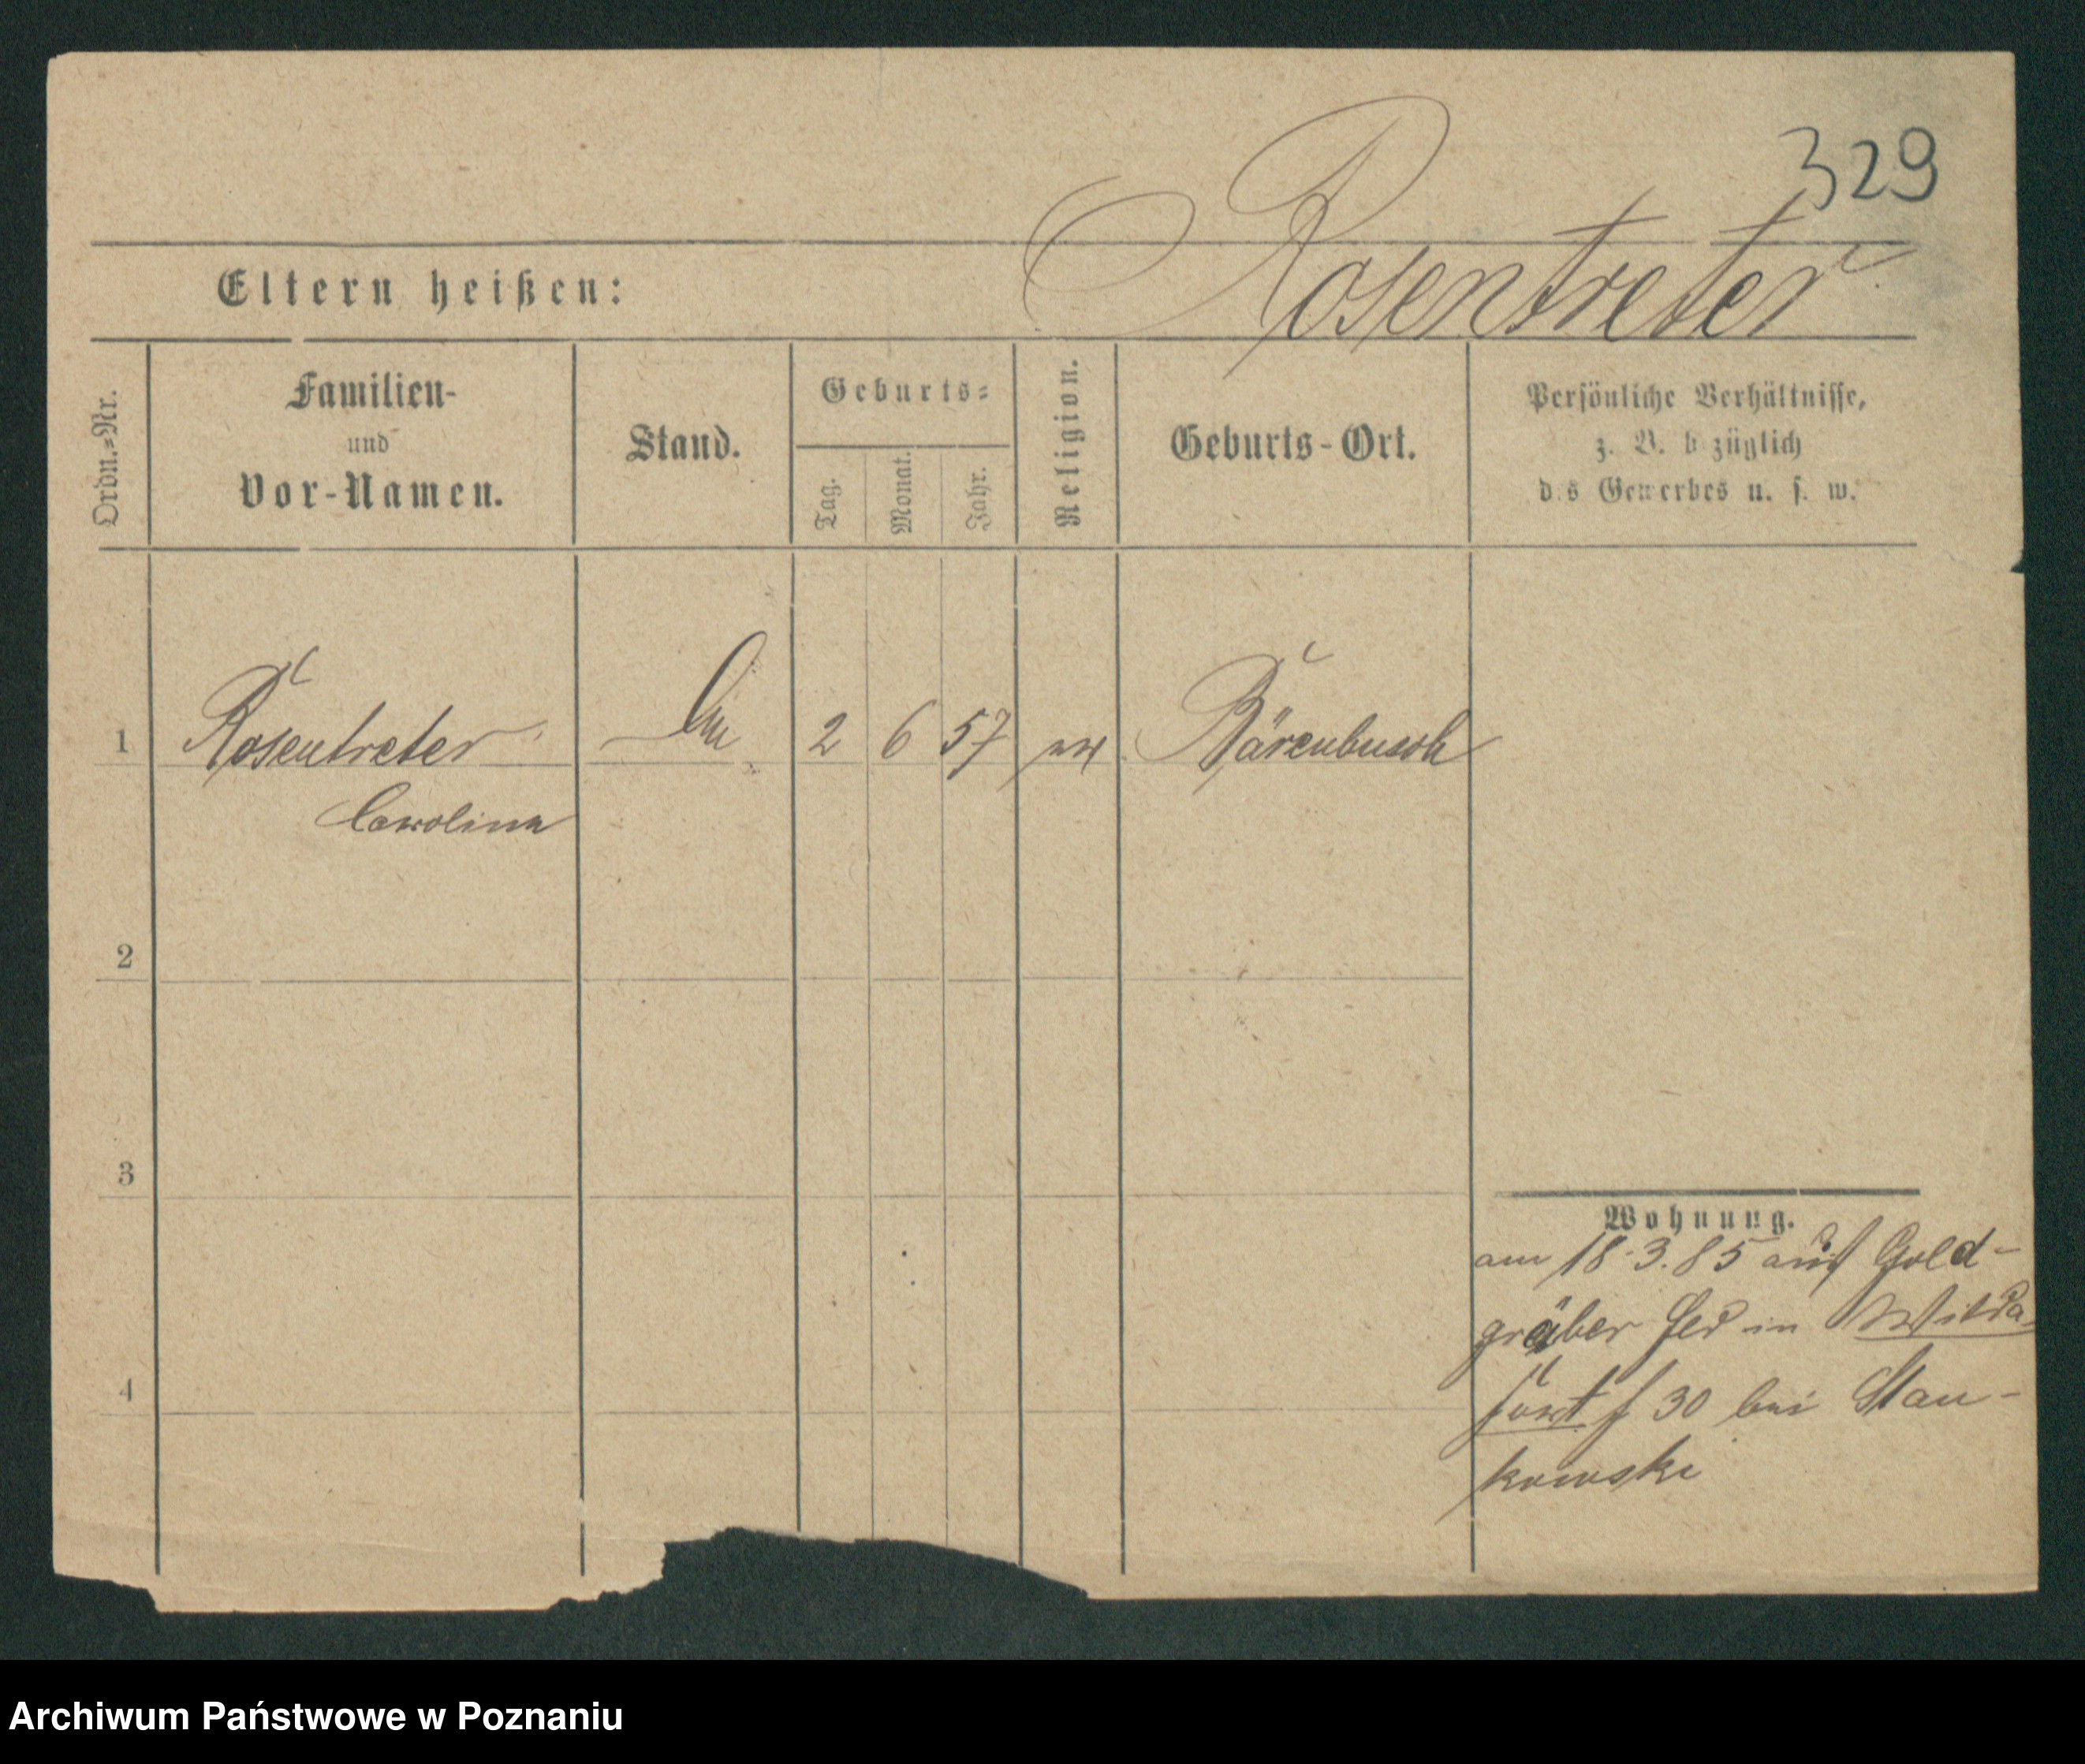 329
Rosentreter
Eltern heißen:
Ordn.=Nr.
Familien-
und
Vor-Namen.
Stand.
Geburts=
Tag.
Monat.
Jahr.
Religion.
Geburts-Ort.
Persönliche Verhältnisse,
z. B. b züglich
d.s Gewerbes u. s. w.
1 Rosentreter 2 6 57 Bärenbusch
Carolina
2
3
4
Wohnung.
am 18.3.85 auf Gold-
gräber in Wilda
30 bei Stan-
kowski
Archiwum Państwowe w Poznaniu